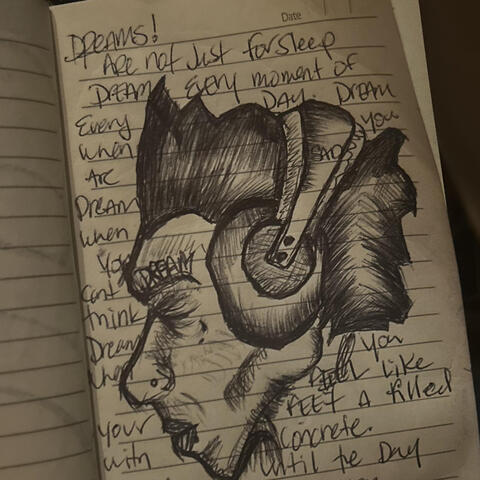 Date
DREAMS!
Are not Just for sleep
DREAM Every moment of
Every DAY. DREAM
when you
Are SAD
DREAM
when
You DREAM
Cant
think
Dream
when You
feel like
your FEET A filled
with Concrete.
Until the Day